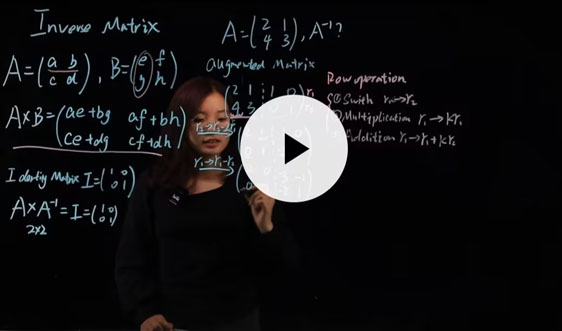 Inverse Matrix
A = (a b
c d), B = (e f
g h)
A×B = (ae+bg af+bh
ce+dg cf+dh)
Identity Matrix I = (1 0
0 1)
A × A⁻¹ = I = (1 0
0 1)
2×2
A = (2 1
4 3), A⁻¹?
Augmented Matrix
(2 1 1 0) r₁
(4 3 1) r₂
r₁→r₁-r₂
Row operation
Swith r₁→r₂
Multiplication r₁→kr₁
Addition r₁→r₁+kr₂